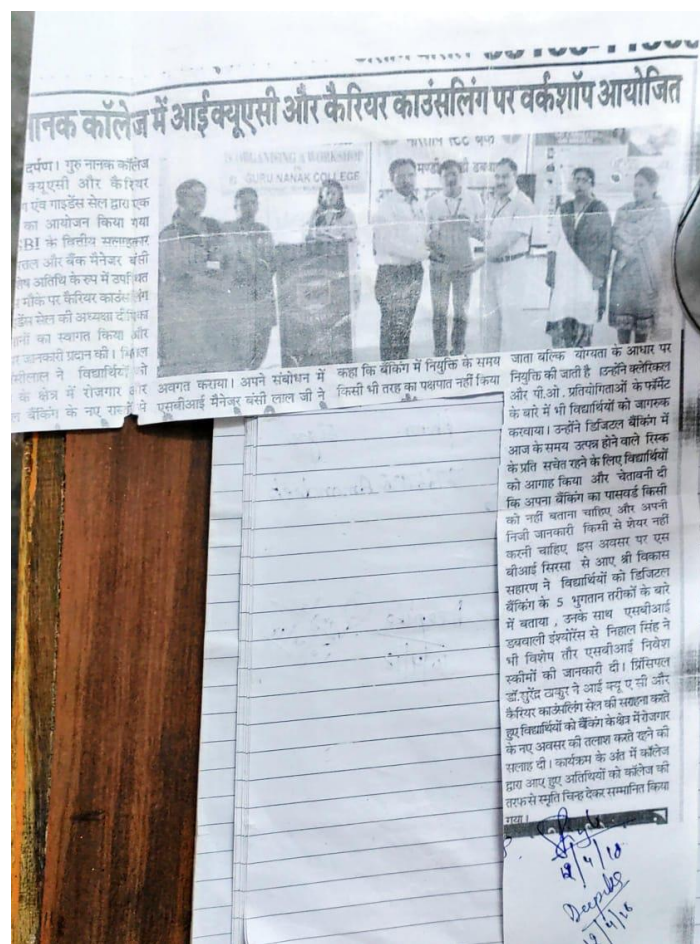 नानक कॉलेज में आईक्यूएसी और कैरियर काउंसलिंग पर वर्कशॉप आयोजित
IS ORGANISING A WORKSHOP
GURU NANAK COLLEGE
दर्पण। गुरु नानक कॉलेज
क्यूएसी और कैरियर
एंव गाइडेंस सेल द्वारा एक
का आयोजन किया गया
BI के वित्तीय सलाहकार
और बैंक मैनेजर बंसी
अतिथि के रुप में उपस्थित
मौके पर कैरियर काउंसलिंग
सेल की अध्यक्षा दीपिका
का स्वागत किया और
जानकारी प्रदान की।
ने विद्यार्थियों को
के क्षेत्र में रोजगार और
बैंकिंग के नए
अवगत कराया। अपने संबोधन में
एसबीआई मैनेजर बंसी लाल जी ने
कहा कि बैंकिंग में नियुक्ति के समय
किसी भी तरह का पक्षपात नहीं किया
जाता बल्कि योग्यता के आधार पर
नियुक्ति की जाती है उन्होंने क्लेरिकल
और पी.ओ. प्रतियोगिताओं के फॉर्मेट
के बारे में भी विद्यार्थियों को जागरुक
करवाया। उन्होंने डिजिटल बैंकिंग में
आज के समय उत्पन्न होने वाले रिस्क
के प्रति सचेत रहने के लिए विद्यार्थियों
को आगाह किया और चेतावनी दी
कि अपना बैंकिंग का पासवर्ड किसी
को नहीं बताना चाहिए और अपनी
निजी जानकारी किसी से शेयर नहीं
करनी चाहिए इस अवसर पर एस
बीआई सिरसा से आए श्री विकास
सहारण ने विद्यार्थियों को डिजिटल
बैंकिंग के 5 भुगतान तरीकों के बारे
में बताया , उनके साथ एसबीआई
डबवाली इंश्योरेंस से निहाल सिंह ने
भी विशेष तौर एसबीआई निवेश
स्कीमों की जानकारी दी। प्रिंसिपल
डॉ.सुरेंद्र ठाकुर ने आई क्यू ए सी और
कैरियर काउंसलिंग सेल की सराहना करते
हुए विद्यार्थियों को बैंकिंग के क्षेत्र में रोजगार
के नए अवसर की तलाश करते रहने की
सलाह दी। कार्यक्रम के अंत में कॉलेज
द्वारा आए हुए अतिथियों को कॉलेज की
तरफ से स्मृति चिन्ह देकर सम्मानित किया
गया।
12/4/18
Deepika
12/4/18